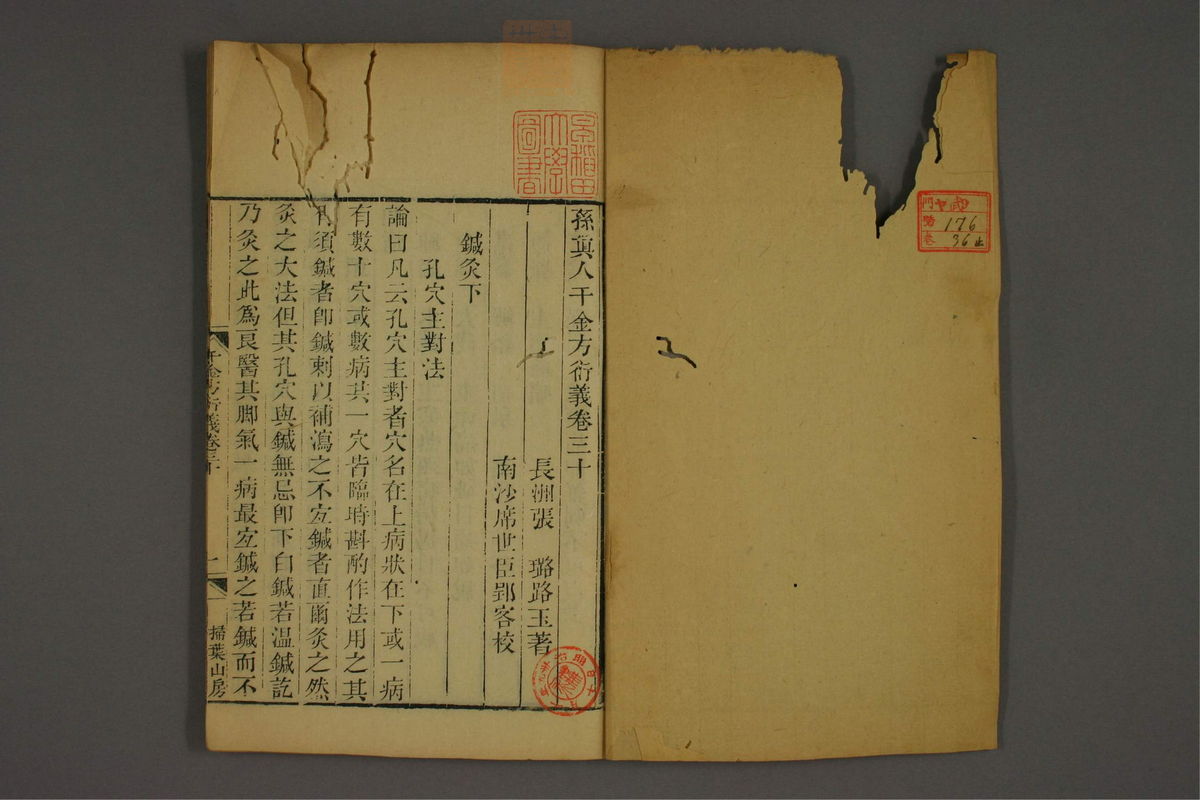 孫真人千金方衍義卷三十
長洲張　璐路玉著
南沙席世臣郢客校
鍼灸下
孔穴主對法
論曰凡云孔穴主對者穴名在上病狀在下或一病
有數十穴或數病共一穴皆臨時斟酌作法用之其
有須鍼者卽鍼刺以補瀉之不宐鍼者直爾灸之然
灸之大法但其孔穴與鍼無忌卽下白鍼若溫鍼訖
乃灸之此爲良醫其脚氣一病最宐鍼之若鍼而不
千金方衍義卷三十
一
掃葉山房
早稻田
大學
圖書
門
號 176
卷 36